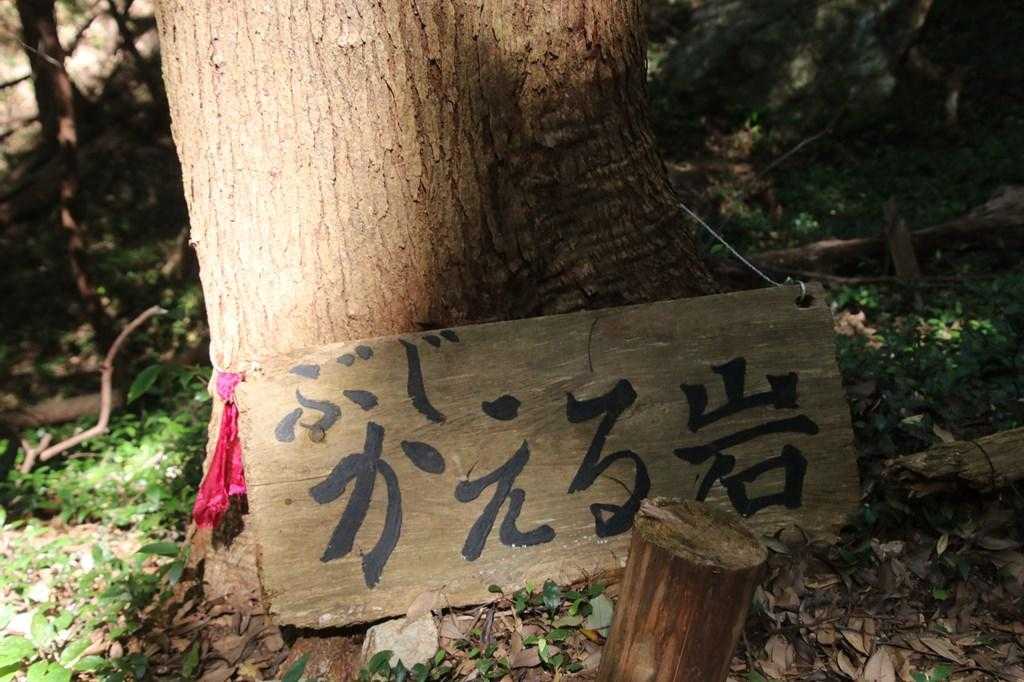 ぶじ
かえる岩